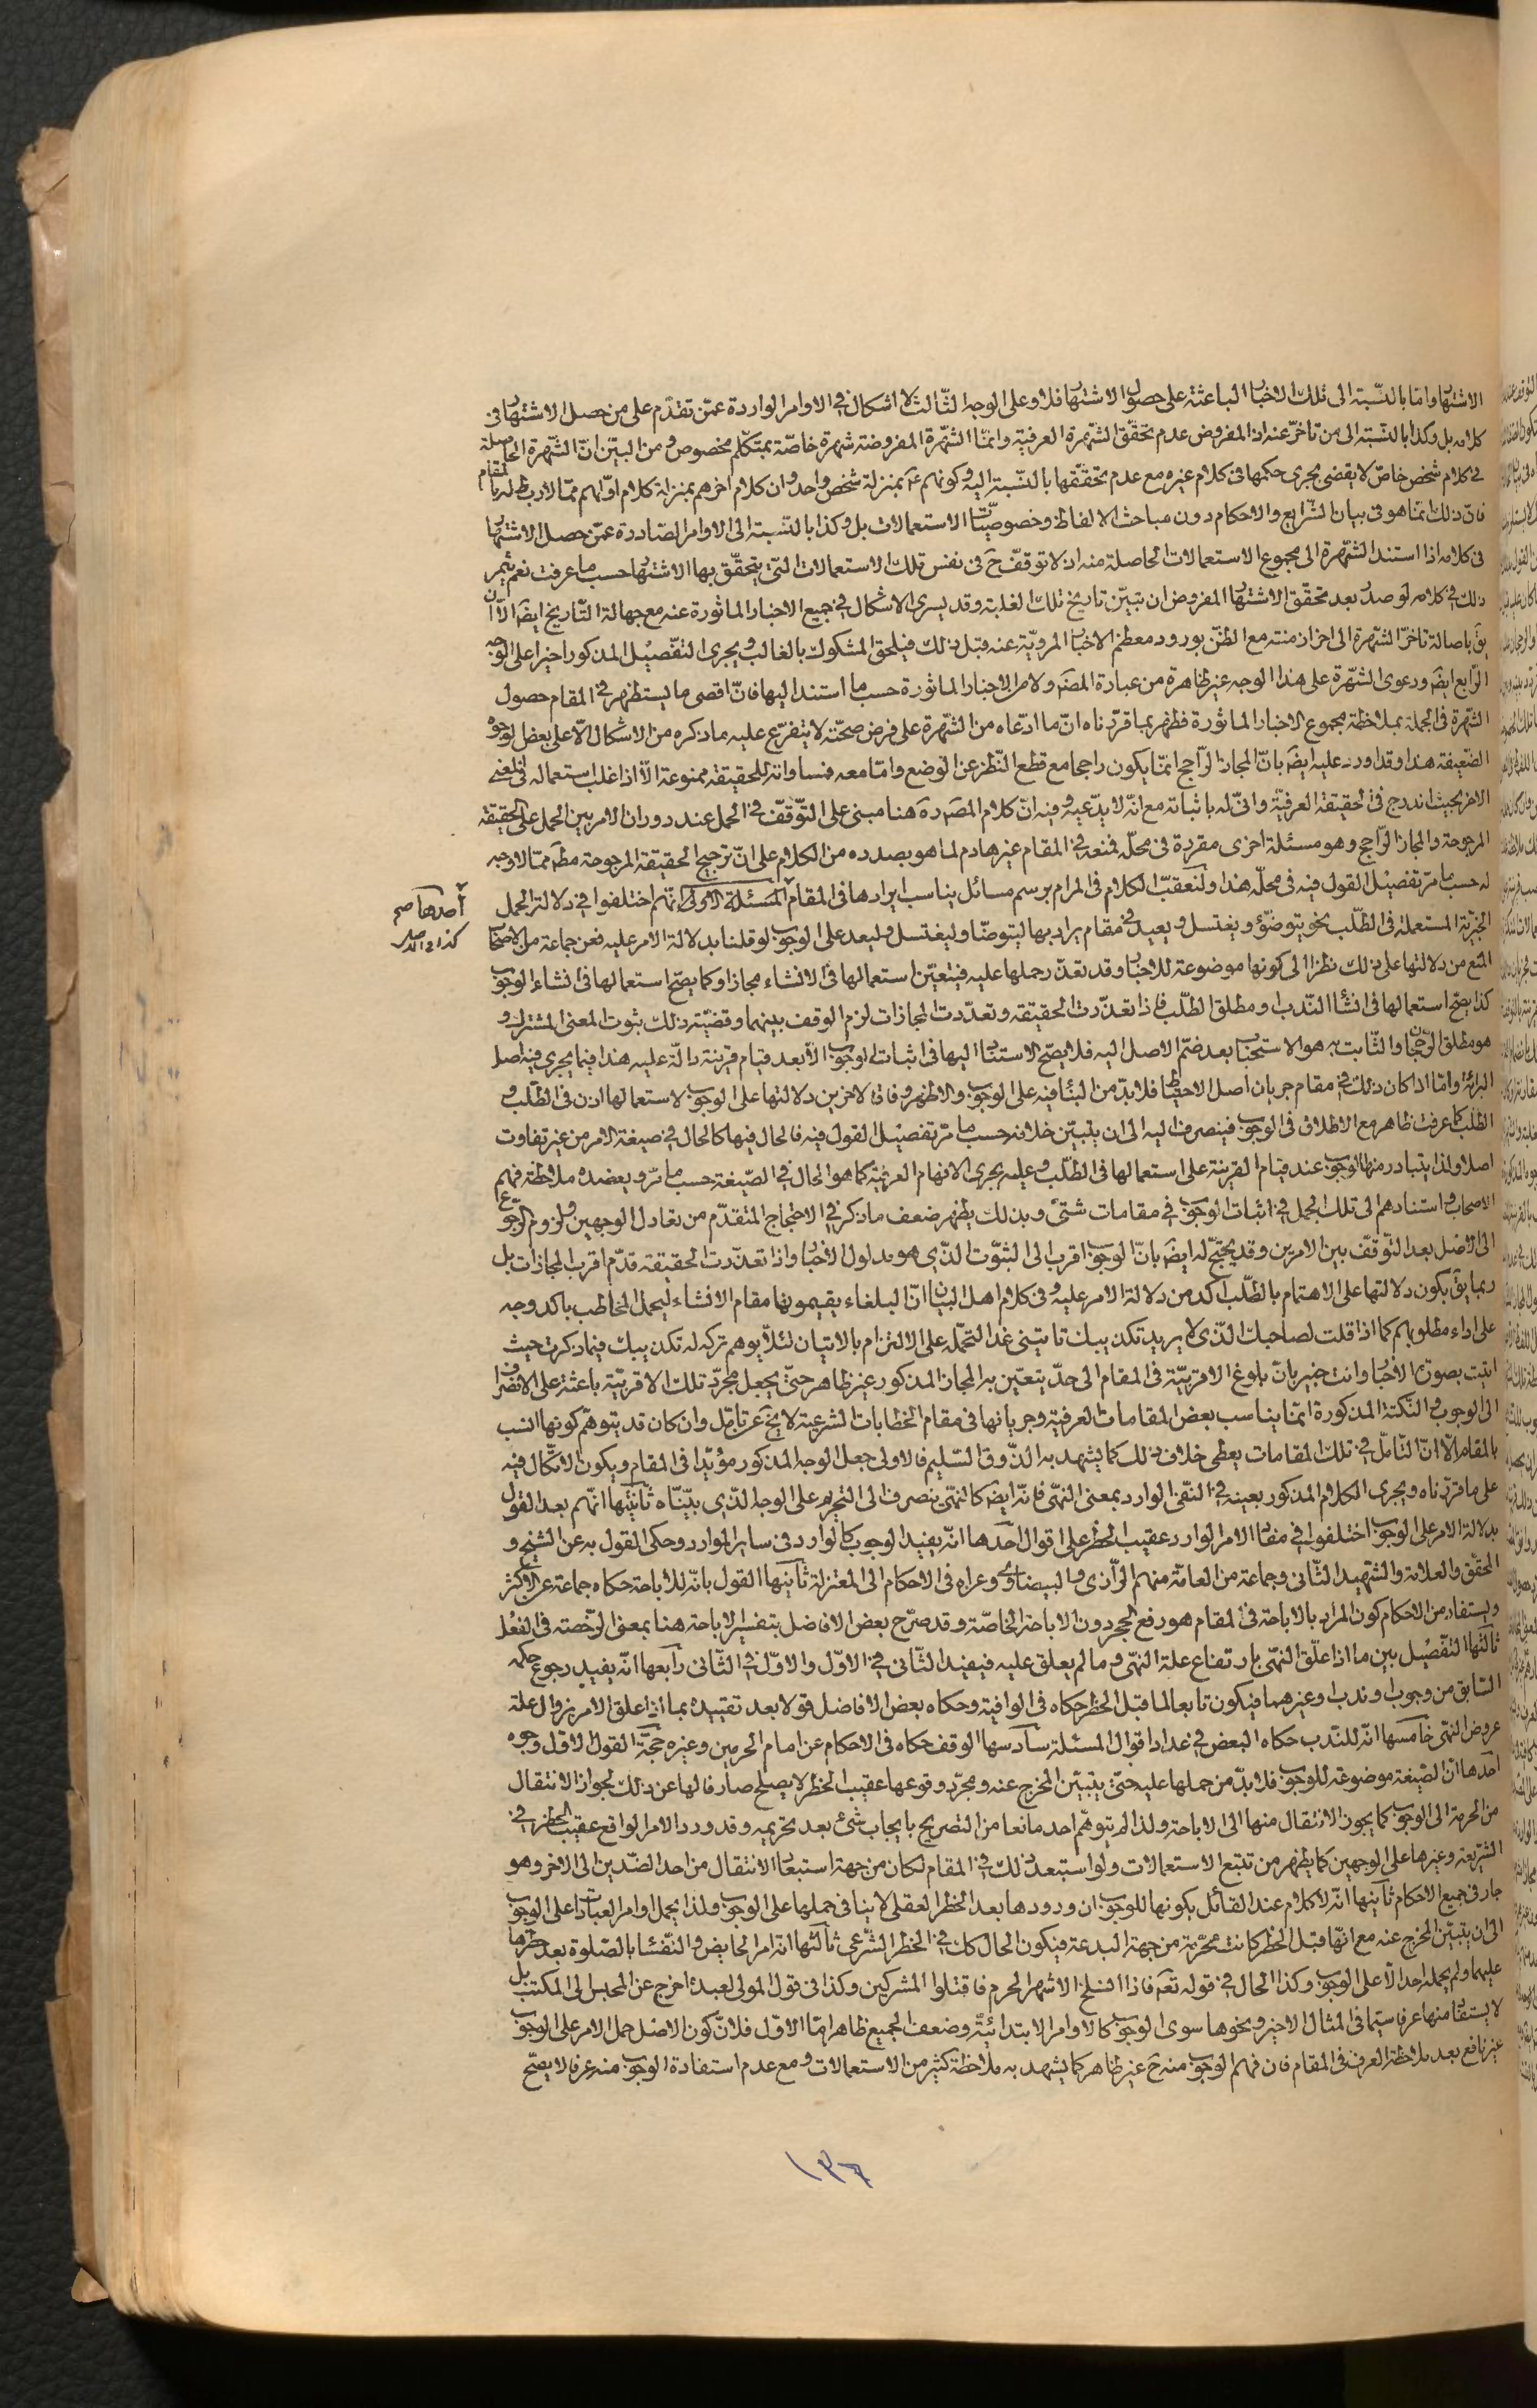 الاشتهار واما بالنسبة الى تلك الاخبار الباعثة على حصول الاشتهار فلا وعلى الوجه الثالث لا اشكال في الاوامر الواردة عمن تقدم على من حصل الاشتهار في
كلامه بل وكذا بالنسبة الى من تاخر عنه اذ المفروض عدم تحقق الشهرة العرفية وانما الشهرة المفروضة شهرة خاصة بمتكلم مخصوص ومن البين ان الشهرة الحاصلة
في كلام شخص خاص لا يقضى بجرى حكمها في كلام غيره مع عدم تحققها بالنسبة اليه وكونهم عم بمنزلة شخص واحد وان كلام اخرهم بمنزلة كلام اولهم مما لا ربط له بالمقام
فان ذلك انما هو في بيان الشرايع والاحكام دون مباحث الالفاظ وخصوصيات الاستعمالات بل وكذا بالنسبة الى الاوامر الصادرة عمن حصل الاشتهار
في كلامه اذا استند الشهرة الى مجموع الاستعمالات الحاصلة منه اذ لا توقف ح في نفس تلك الاستعمالات التي يتحقق بها الاشتهار حسب ما عرفت نعم يثمر
ذلك في كلامه لو صدر بعد تحقق الاشتهار المفروض ان تبين تاريخ تلك الغلبة وقد يسرى الاشكال في جميع الاخبار الماثورة عنه مع جهالة التاريخ ايضا الا ان
يق باصالة تاخر الشهرة الى اخر ازمنته مع الظن بورود معظم الاخبار المروية عنه قبل ذلك فيلحق المشكوك بالغالب ويجرى التفصيل المذكور اخيرا على الوجه
الرابع ايضا ودعوى الشهرة على هذا الوجه غير ظاهرة من عبارة المصنف ولا من الاخبار الماثورة حسب ما استند اليها فان اقصى ما يستظهر في المقام حصول
الشهرة في الجملة بملاحظة مجموع الاخبار الماثورة فظهر بما قررناه ان ما ادعاه من الشهرة على فرض صحته لا يتفرع عليه ما ذكره من الاشكال الا على بعض الوجوه
الضعيفة هذا وقد اورد عليه ايضا بان المجاز الراجح انما يكون راجحا مع قطع النظر عن الوضع واما معه فمساواته للحقيقة ممنوعة الا اذا غلب استعماله في المعنى
الاخر بحيث اندرج في الحقيقة العرفية وانى له باثباته مع انه لا يدعيه وفيه ان كلام المصنف ره هنا مبنى على التوقف في الحمل عند دوران الامر بين الحمل على الحقيقة
المرجوحة والمجاز الراجح وهو مسئلة اخرى مقررة في محله فمنعه في المقام غير هادم لما هو بصدده من الكلام على ان ترجيح الحقيقة المرجوحة مطلقا مما لا وجه
له حسب ما مر تفصيل القول فيه في محله هذا ولنعقب الكلام في المرام برسم مسائل يناسب ايرادها في المقام المسئلة الاولى انهم اختلفوا في دلالة الجمل
الخبرية المستعملة في الطلب نحو يتوضؤ ويغتسل ويعيد في مقام يراد بها ليتوضا وليغتسل وليعد على الوجوب لو قلنا بدلالة الامر عليه فعن جماعة من الاصحاب
المنع من دلالتها على ذلك نظرا الى كونها موضوعة للاخبار وقد تعذر حملها عليه فيتعين استعمالها في الانشاء مجازا وكما يصح استعمالها في انشاء الوجوب
كذا يصح استعمالها في انشاء الندب او مطلق الطلب فاذا تعذرت الحقيقة وتعددت المجازات لزم الوقف بينهما وقضية ذلك ثبوت المعنى المشترك و
هو مطلق الرجحان والثابت به هو الاستحباب بعد ضم الاصل اليه فلا يصح الاستناد اليها في اثبات الوجوب الا بعد قيام قرينة دالة عليه هذا فيما يجرى فيه اصل
البرائة واما اذا كان ذلك في مقام جريان اصل الاحتياط فلا بد من البناء فيه على الوجوب والاظهر وفاقا لاخرين دلالتها على الوجوب لاستعمالها اذن في الطلب و
الطلب كما عرفت ظاهر مع الاطلاق في الوجوب فينصرف اليه الى ان يتبين خلافه حسب ما مر تفصيل القول فيه فالحال فيها كالحال في صيغة الامر من غير تفاوت
اصلا ولذا يتبادر منها الوجوب عند قيام القرينة على استعمالها في الطلب وعليه يجرى الافهام العرفية كما هو الحال في الصيغة حسب ما مر ويعضده ملاحظة فهم
الاصحاب واستنادهم الى تلك الجمل في اثبات الوجوب في مقامات شتى وبذلك يظهر ضعف ما ذكر في الاحتجاج المتقدم من تعادل الوجهين ولزوم الرجوع
الى الاصل بعد التوقف بين الامرين وقد يحتج له ايضا بان الوجوب اقرب الى الثبوت الذي هو مدلول الاخبار واذا تعذرت الحقيقة قدم اقرب المجازات بل
ربما يق بكون دلالتها على الاهتمام بالطلب اكد من دلالة الامر عليه وفي كلام اهل البيان ان البلغاء يقيمونها مقام الانشاء ليحمل المخاطب باكد وجه
على اداء مطلوبهم كما اذا قلت لصاحبك الذي لا يريد تكذيبك تاتينى غدا لتحمله على الالتزام بالاتيان لئلا يوهم تركه له تكذيبك فيما ذكرت حيث
اتيت بصورة الاخبار وانت خبير بان بلوغ الاقربية في المقام الى حد يتعين به المجاز المذكور غير ظاهر حتى يجعل مجرد تلك الاقربية باعثة على الانصراف
الى الوجوب والنكتة المذكورة انما يناسب بعض المقامات العرفية وجريانها في مقام الخطابات الشرعية لا يخ عن تامل وان كان قد يتوهم كونها انسب
بالمقام الا ان التامل في تلك المقامات يعطى خلاف ذلك كما يشهد به الذوق السليم فالاولى جعل الوجه المذكور مؤيدا في المقام ويكون الاتكال فيه
على ما قررناه ويجرى الكلام المذكور بعينه في النفى الوارد بمعنى النهى فانه ايضا كالنهى ينصرف الى التحريم على الوجه الذي بيناه ثانيها انهم بعد القول
بدلالة الامر على الوجوب اختلفوا في مفاد الامر الوارد عقيب الحظر على اقوال احدها انه يفيد الوجوب كالوارد في ساير الموارد وحكى القول به عن الشيخ و
المحقق والعلامة والشهيد الثاني وجماعة من العامة منهم الرازى والبيضاوى وعزاه في الاحكام الى المعتزلة ثانيها القول بانه للاباحة حكاه جماعة عن الاكثر
ويستفاد من الاحكام كون المراد بالاباحة في المقام هو رفع الحجر دون الاباحة الخاصة وقد صرح بعض الافاضل بتفسير الاباحة هنا بمعنى الرخصة في الفعل
ثالثها التفصيل بين ما اذا علق النهى بارتفاع علة النهى وما لم يعلق عليه فيفيد الثاني في الاول والاول في الثاني رابعها انه يفيد رجوع حكمه
السابق من وجوب او ندب او غيرهما فيكون تابعا لما قبل الحظر حكاه في الوافية وحكاه بعض الافاضل قولا بعد تقييده بما اذا علق الامر بزوال علة
عروض النهى خامسها انه للندب حكاه البعض في عداد اقوال المسئلة سادسها الوقف حكاه في الاحكام عن امام الحرمين وغيره حجة القول الاول وجوه
احدها ان الصيغة موضوعة للوجوب فلا بد من حملها عليه حتى يتبين المخرج عنه ومجرد وقوعها عقيب الحظر لا يصلح صارفا لها عن ذلك لجواز الانتقال
من الحرمة الى الوجوب كما يجوز الانتقال منها الى الاباحة ولذا لم يتوهم احد مانعا من التصريح بايجاب شئ بعد تحريمه وقد ورد الامر الواقع عقيب الحظر في
الشريعة وغيرها على الوجهين كما يظهر من تتبع الاستعمالات ولو استبعد ذلك في المقام لكان من جهة استبعاد الانتقال من احد الضدين الى الاخر وهو
جار في جميع الاحكام ثانيها انه لا كلام عند القائل بكونها للوجوب ان ورودها بعد الحظر العقلى لا ينافى حملها على الوجوب ولذا يحمل اوامر العبادات على الوجوب
الى ان يتبين المخرج عنه مع انها قبل الحظر كانت محرمة من جهة البدعة فيكون الحال كك في الحظر الشرعى ثالثها انه امر الحايض والنفساء بالصلوة بعد حظرها
عليهما ولم يحمله احد الا على الوجوب وكذا الحال في قوله تعه فاذا انسلخ الاشهر الحرم فاقتلوا المشركين وكذا في قول المولى لعبده اخرج عن المحبس الى المكتب بل
لا يستفاد منها عرفا سيما في المثال الاخير ونحوها سوى الوجوب كالاوامر الابتدائية وضعف الجميع ظاهر اما الاول فلان كون الاصل حمل الامر على الوجوب
غير نافع بعد ملاحظة العرف في المقام فان فهم الوجوب منه ح غير ظاهر كما يشهد به ملاحظة كثير من الاستعمالات ومع عدم استفادة الوجوب منه عرفا لا يصح
احدها صح
كذا في الاصل
١٣٦